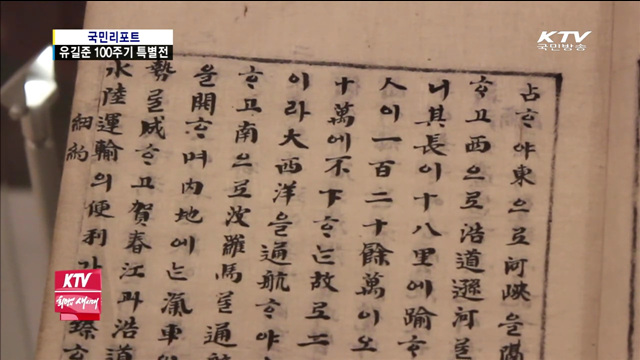 국민리포트
유길준 100주기 특별전
KTV
국민방송
占ᄒᆞ야東으로河峽을
ᄒᆞ고西으로浩道遜河를
니其長이十八里에踰ᄒᆞ
人이一百二十餘萬이오
十萬에不下ᄒᆞᄂᆞᆫ故로二
이라大西洋을通航ᄒᆞ야
ᄒᆞ고南으로波羅馬를通航
을開ᄒᆞ며內地에ᄂᆞᆫ滊車
勢를成ᄒᆞ고賀春江과浩道
水陸運輸의便利가
約
KTV